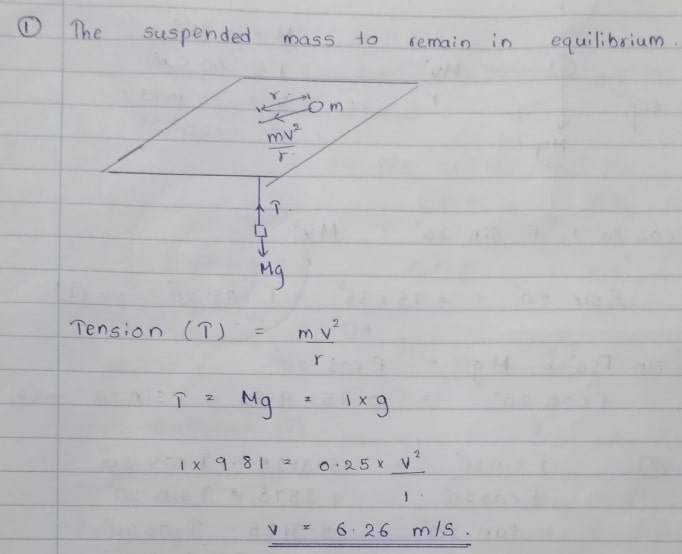 ① The suspended mass to remain in equilibrium.
r
m
mv²/r.
T.
Mg
Tension (T) = mv²/r.
T = Mg = 1 x g
1 x 9.81 = 0.25 x v²/1.
v = 6.26 m/s.